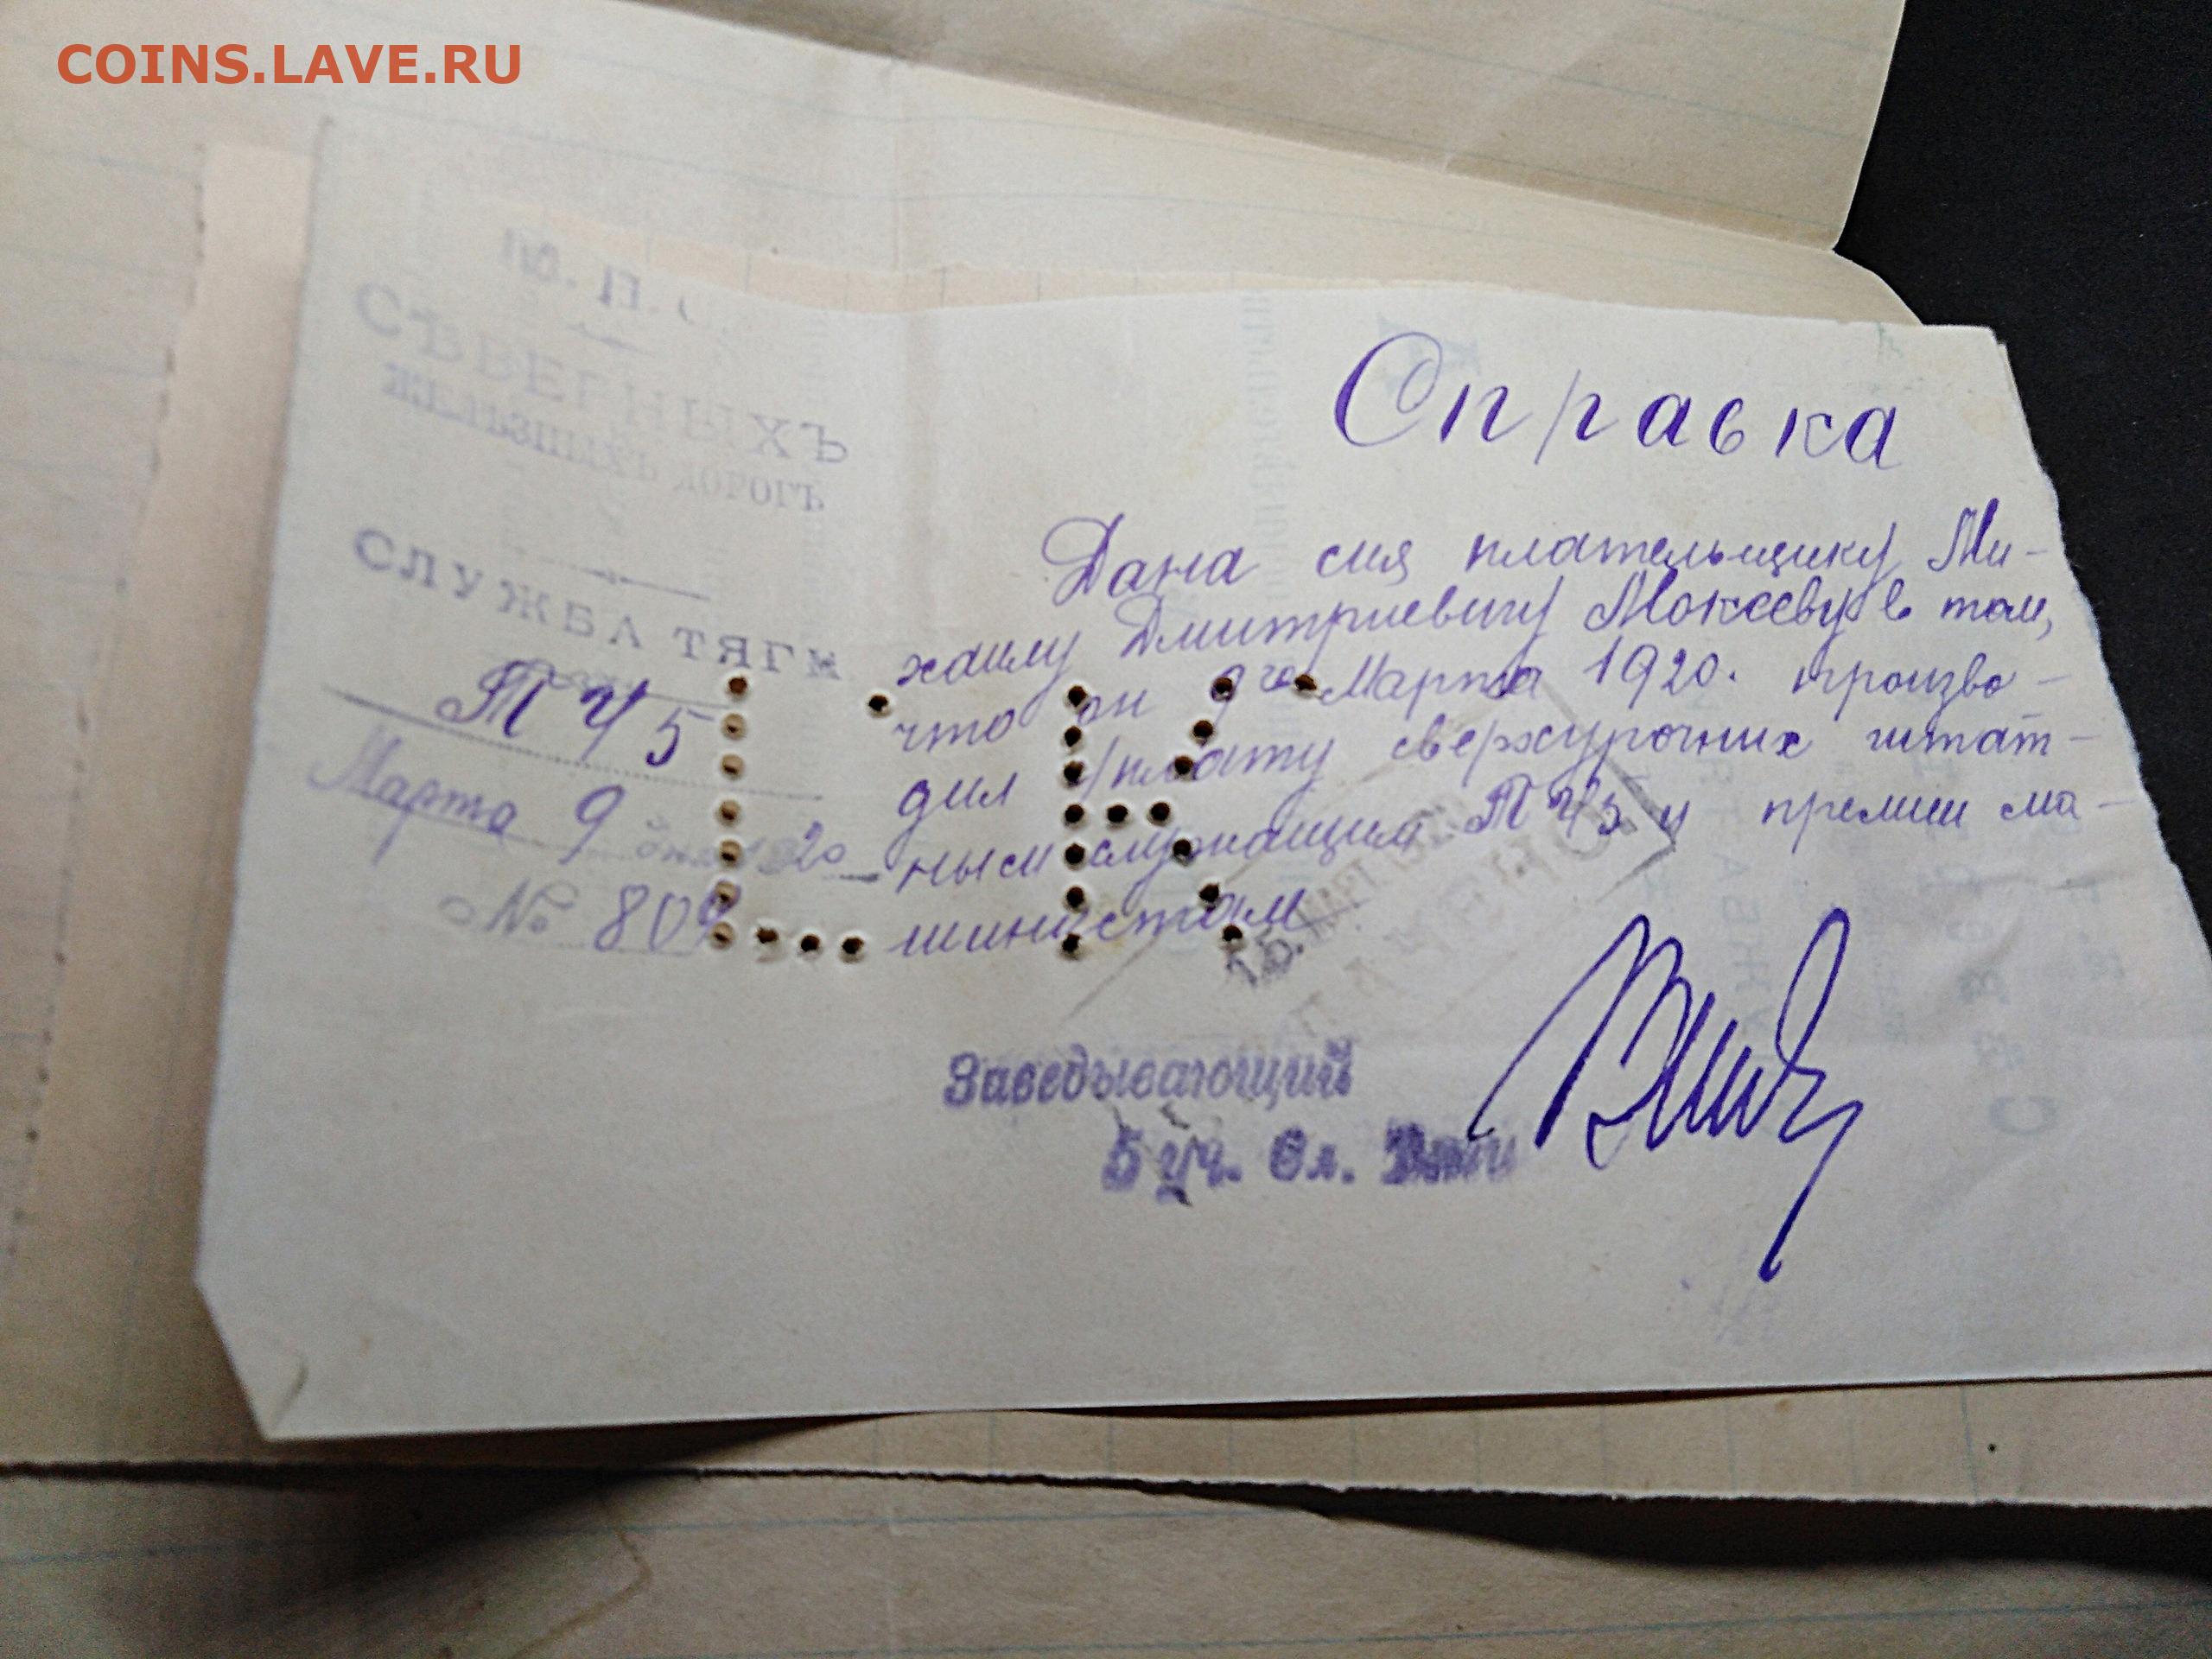 COINS.LAVE.RU
СѢВЕРНЫХЪ
ЖЕЛѢЗНЫХЪ ДОРОГЪ
СЛУЖБА ТЯГИ
ТЧ5
Марта 9 дня 1920
№ 809
Справка
Дана сия плательщику Ми-
хаилу Дмитриевичу Мокееву в том,
что он 9го Марта 1920. произво-
дил уплату сверхурочних штат-
ным служащим ТЧ5 и премии ма-
шинистам
Заведывающий
5 уч. Сл. Тяги